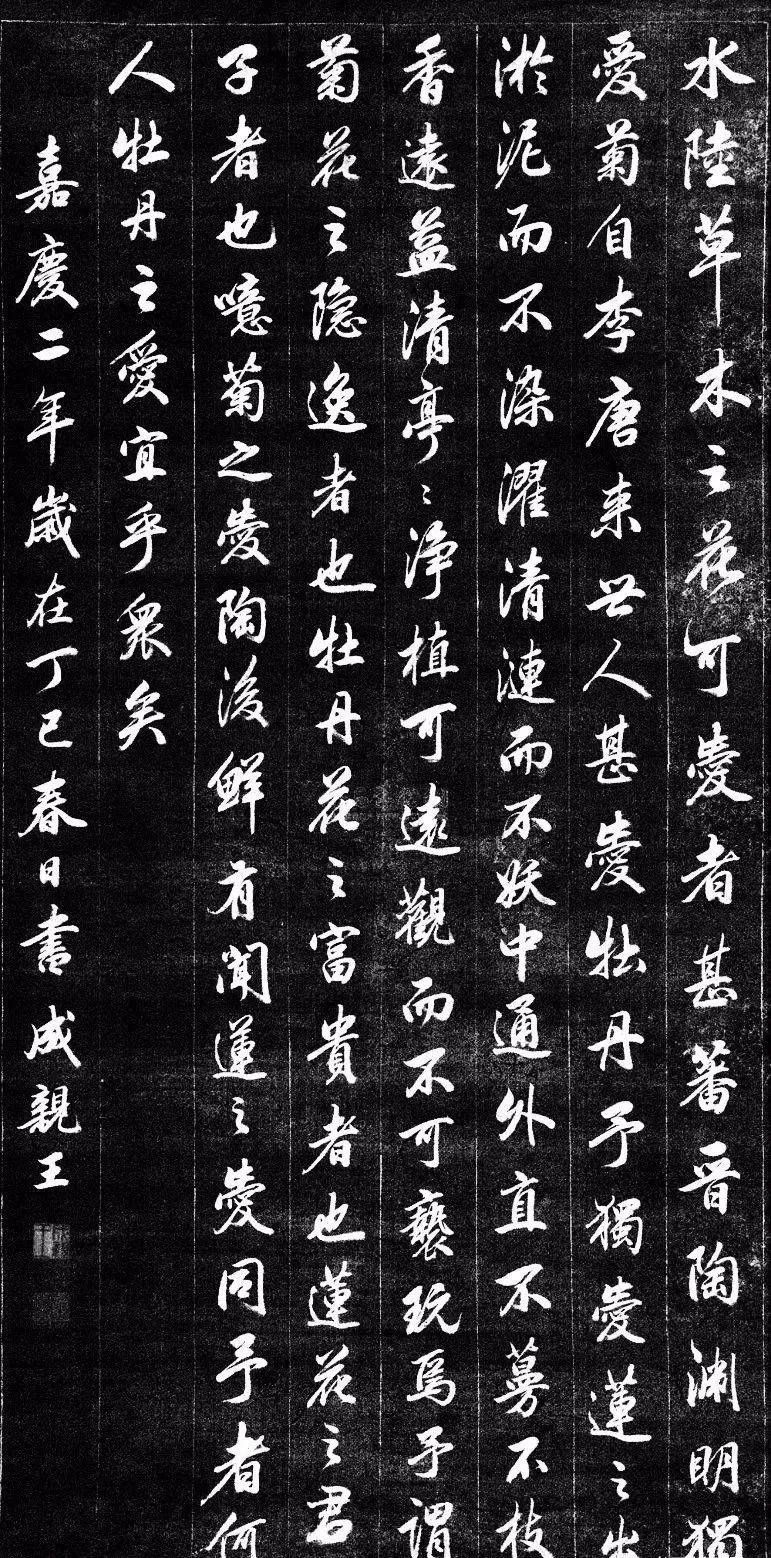 水陸草木之花可愛者甚蕃晉陶渊明獨
愛菊自李唐来世人甚愛牡丹予獨愛蓮之出
淤泥而不染濯清漣而不妖中通外直不蔓不枝
香遠益清亭〻淨植可遠觀而不可褻玩焉予謂
菊花之隐逸者也牡丹花之富貴者也蓮花之君
子者也噫菊之愛陶後鮮有聞蓮之愛同予者何
人牡丹之愛宜乎眾矣
嘉慶二年歲在丁巳春日書成親王